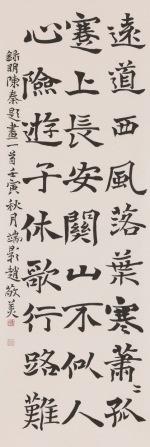 遠道西風落葉寒蕭蕭孤
蹇上長安關山不似人
心險遊子休歌行路難
錄明陳秦題畫一首壬寅秋月端彰趙敬美